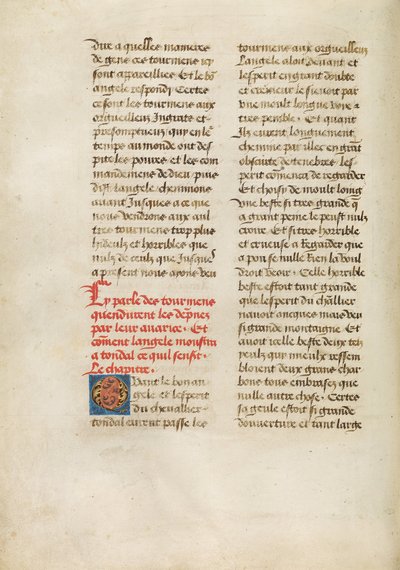 dire a quelles manieres
de gens ces tourmens icy
sont appareilliés. Et le bō
angele respondy. Certes
ce sont les tourmens aux
orguilleux Ingrats et
presomptueux qui en leʳ
temps au monde ont des
pite les poures et les com
mandemens de dieu. puis
dist langele cheminons
auant Jusques a ce que
nous vendrons aux aul
tres tourmens trop plus
hideulx et horribles que
nulz de ceulx que Jusquez
a present nous ayons veu
Cy parle des tourmens
quendurent les dēpnez
par leur auarice. Et
cōment langele monstra
a tondal ce quil sensit.
Le chapitre.
Quant le bon an
gele et lesperit
du cheualier
tondal eurent passe les
tourmens aux orguilleux
Langele aloit deuant et
lesperit en grant doubte
et cremeur le sieuoit par
vne moult longue voie a
tres penible. Et quant
Ilz eurent longuement
chemine par illec en grāt
obscurte de tenebres. les
perit cōmenca de regarder
Et choisi de moult loing
vne beste si tres grande q̄
a grant peine le peust nulz
croire. Et si tres horrible
et crueuse a Regarder que
a pou se nulle Rien la voul
droit veoir. Celle horrible
beste estoit tant grande
que lesperit du chl̄lier
nauoit oncques mais veu
si grande montaigne. Et
auoit icelle beste deux tels
yeulx qui mieulx ressem
bloient deux grans char
bons tous embrases que
nulle autre chose. Certes
sa geule estoit si grande
douuerture et tant large